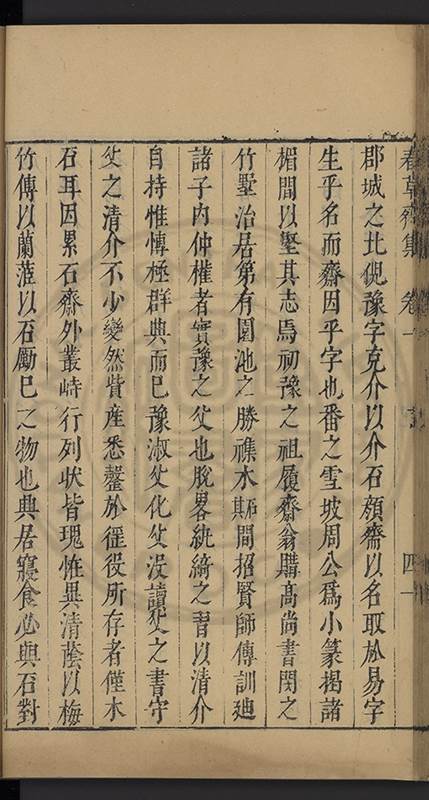 春草齋集 卷一 記 四一
郡城之北倪豫字克介以介石顏齋以名取於易字
生乎名而齋因乎字也番之雪坡周公爲小篆揭諸
楣間以堅其志焉初豫之祖履齋翁購高尚書閌之
竹墅治居第有園池之勝樵水斯間招賢師傅訓廸
諸子內仲權者實豫之父也脫畧紈綺之習以清介
自持惟慱極群典而已豫淑父化父没讀父之書守
父之清介不少變然貲産悉罄於徭役所存者僅水
石耳因累石齋外叢峙行列狀皆瑰恠異清蔭以梅
竹傳以蘭蒞以石勵巳之物也與居寢食必與石對